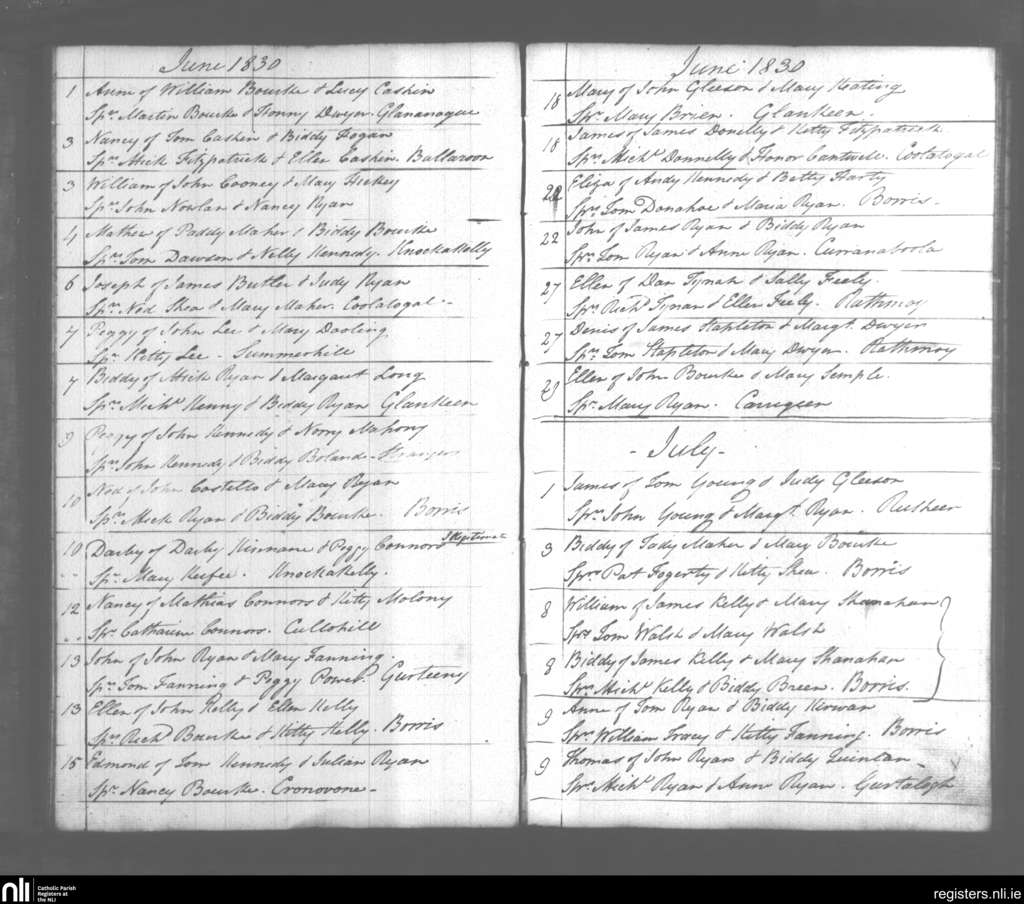 June 1830
1 Anne of William Bourke & Lucy Cashin
Sprs Martin Bourke & Honny Dwyer. Glananague
3 Nancy of Tom Cashin & Biddy Hogan
Sprs Mick Fitzpatrick & Ellen Cashin. Ballaroon
3 William of John Cooney & Mary Hickey
Sprs John Nowlan & Nancy Ryan
4 Mathee of Paddy Maher & Biddy Bourke
Sprs Tom Dawson & Nelly Kennedy. Knockakelly
6 Joseph of James Butler & Judy Ryan
Sprs Ned Shea & Mary Maher. Coolalogal
7 Peggy of John Lee & Mary Darling
Spr Kitty Lee. Summerhill
7 Biddy of Mick Ryan & Margaret Long
Sprs Michl Kenny & Biddy Ryan Glankeen
9 Peggy of John Kennedy & Norry Mahony
Sprs John Kennedy & Biddy Boland. Strangers
10 Ned of John Costello & Mary Ryan
Sprs Mick Ryan & Biddy Bourke. Borris
10 Darby of Darby Kinnane & Peggy Connors Illegitimate
Spr Mary Keefee. Knockakelly.
12 Nancy of Mathias Connors & Kitty Molony
Spr Catharine Connors. Cullohill
13 John of John Ryan & Mary Fanning.
Sprs Tom Fanning & Peggy Power. Gurteeny
13 Ellen of John Kelly & Ellen Kelly
Sprs Richd Bourke & Kitty Kelly. Borris
15 Edmond of Tom Kennedy & Julian Ryan
Spr Nancy Bourke. Cronovone
June 1830
18 Mary of John Gleeson & Mary Keating
Spr Mary Brien. Glankeen.
18 James of James Donelly & Kitty Fitzpatrick
Sprs Michl Donnelly & Honor Cantwell. Coolalogal
22 Eliza of Andy Kennedy & Betty Harty
Sprs Tom Donahoe & Maria Ryan. Borris
22 John of James Ryan & Biddy Ryan
Sprs Tom Ryan & Anne Ryan. Curranaboola
27 Ellen of Dan Tynah & Sally Feely.
Sprs Richd Tynan & Ellen Feely. Rathmoy
27 Denis of James Stapleton & Margt. Dwyer
Sprs Tom Stapleton & Mary Dwyer. Rathmoy
29 Ellen of John Bourke & Mary Semple.
Spr Mary Ryan. Carrigeen
- July -
1 James of Tom Young & Judy Gleeson
Sprs John Young & Margt. Ryan.
3 Biddy of Tady Maher & Mary Bourke
Sprs Pat Fogerty & Kitty Shea. Borris
8 William of James Kelly & Mary Shanahan
Sprs Tom Walsh & Mary Walsh
8 Biddy of James Kelly & Mary Shanahan
Sprs Michl Kelly & Biddy Breen. Borris.
9 Anne of Tom Ryan & Biddy Kirwan
Sprs William Tracy & Kitty Fanning. Borris
9 Thomas of John Ryan & Biddy Quinlan
Sprs Michl Ryan & Anne Ryan. Gurtalogh
nli
Catholic Parish
Registers at
the NLI
registers.nli.ie